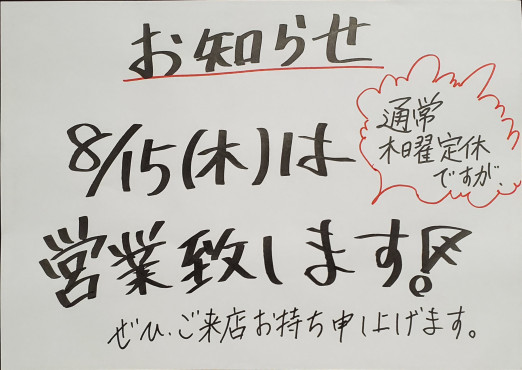 お知らせ
8/15(木)は
通常
木曜定休
ですが、
営業致します!〆
ぜひ、ご来店お持ち申し上げます。